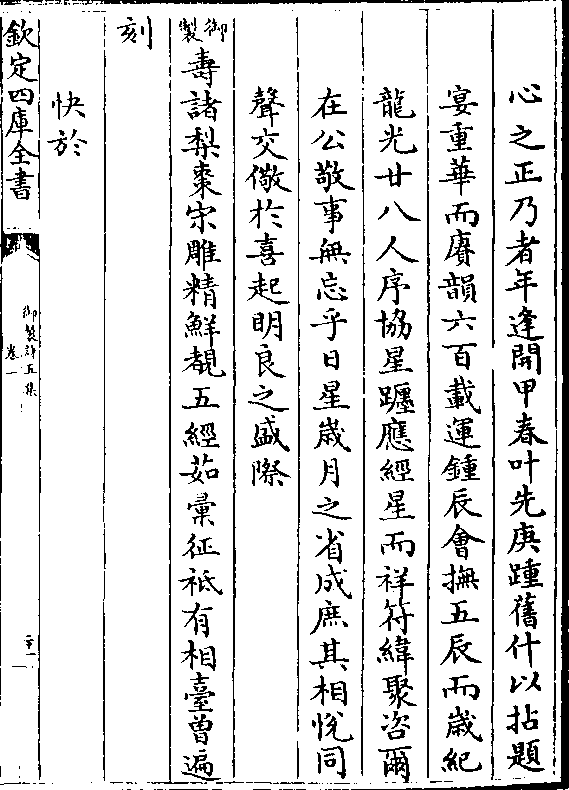 心之正乃者年逢開甲春叶先庚踵舊什以拈題
宴重華而賡韻六百載運鍾辰會撫五辰而歳紀
龍光廿八人序協星躔應經星而祥符緯聚咨爾
在公敬事無忘乎日星歳月之省成庶其相悦同
聲交儆於喜起明良之盛際
御製
壽諸梨棗宋雕精鮮覩五經茹彚征祗有相臺曽遍
刻
快於
欽定四庫全書
御製詩五集
卷一